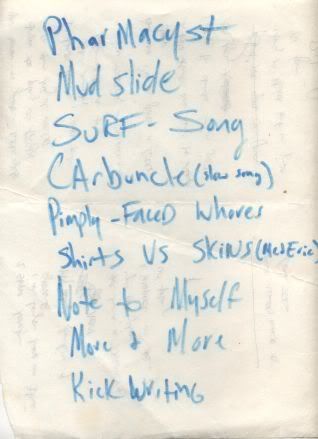 PharMacyst
Mudslide
SURF - Song
CArbuncle (slow song)
Pimply -FaceD Whores
Shirts VS SKINS
Note to Myself
More & More
Kick Writing